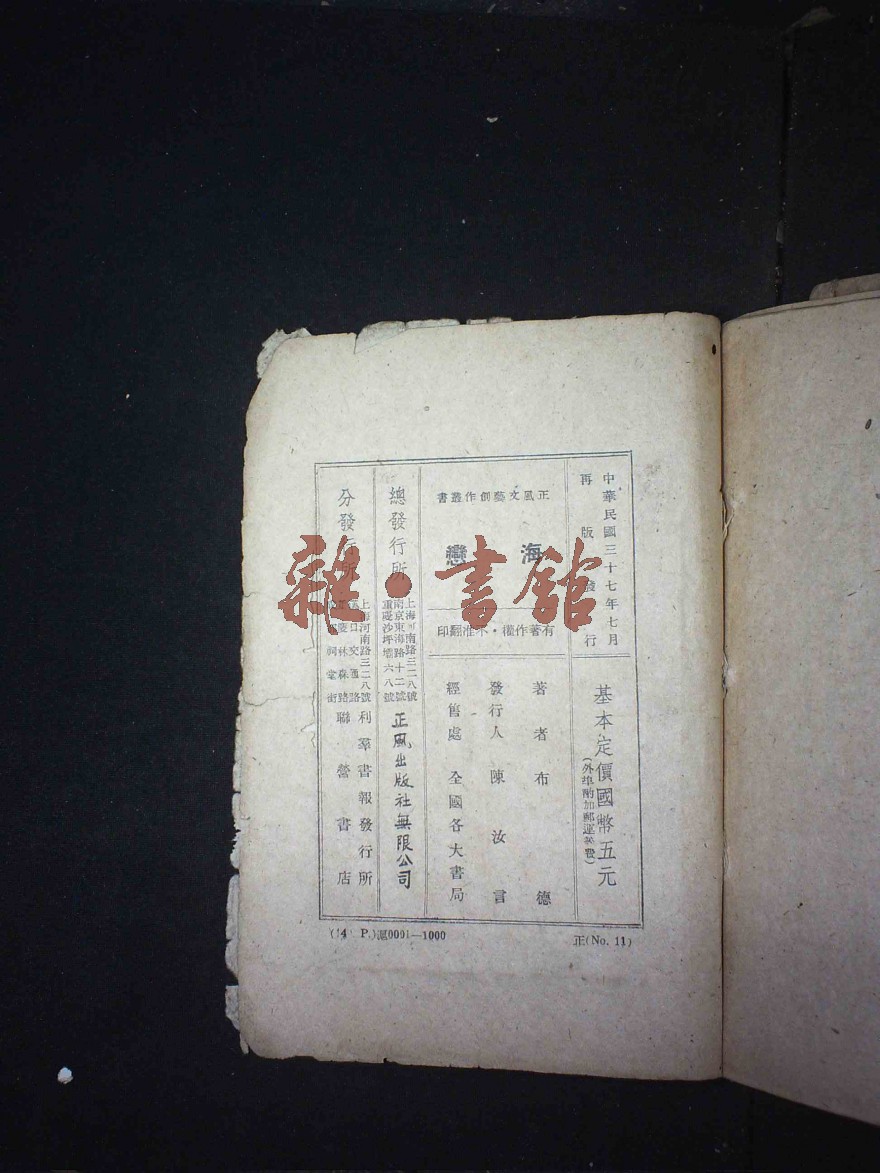 中華民國三十七年七月
再版發行
基本定價國幣五元
(外埠酌加郵運費)
正風文藝創作叢書
海戀
有著作權・不准翻印
著者布德
發行人陳汝言
經售處全國各大書局
總發行所
上海河南路三二八號
南京東海路十二號
重慶沙坪壩六八號
正風出版社無限公司
分發行所
上海河南路三二八號
利羣書報發行所
聯營書店
正(No. 11)
P.)滬0001—1000
雜・書館